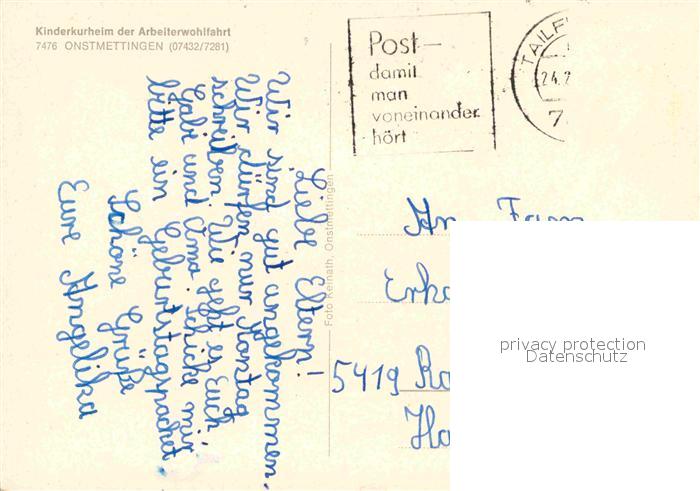 Kinderkurheim der Arbeiterwohlfahrt
7476 ONSTMETTINGEN (07432/7281)
Post—
damit
man
voneinander
hört
TAILF
24.2
7
Liebe Eltern!
Wir sind gut angekommen.
Wir dürfen nur Montag
schreiben. Wie geht es Euch
Gabi und Oma. Schicke mir
bitte ein Geburtstagspacket.
Schöne Grüße
Eure Angelika
Foto Keinath, Onstmettingen
An Fam
Erh
5419 Ra
Ha
privacy protection
Datenschutz